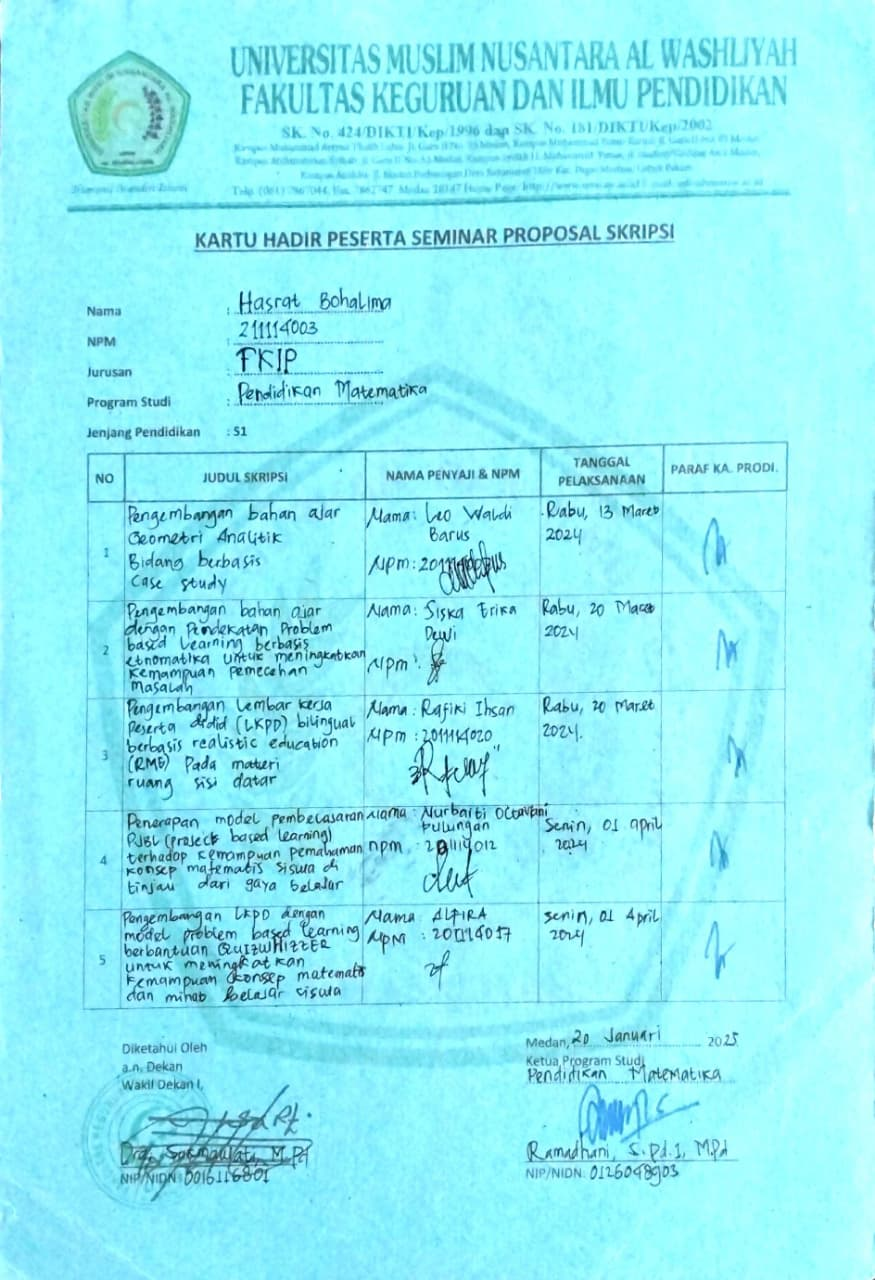 UNIVERSITAS MUSLIM NUSANTARA AL WASHLIYAH
FAKULTAS KEGURUAN DAN ILMU PENDIDIKAN
SK. No. 424/DIKTI/Kep/1996 dan SK. No. 181/DIKTI/Kep/2002
KARTU HADIR PESERTA SEMINAR PROPOSAL SKRIPSI
Nama : Hasrat Bohalima
NPM : 211114003
Jurusan : FKIP
Program Studi : Pendidikan Matematika
Jenjang Pendidikan : S1
NO JUDUL SKRIPSI NAMA PENYAJI & NPM TANGGAL PELAKSANAAN PARAF KA. PRODI.
1
Pengembangan bahan ajar
Geometri Analitik
Bidang berbasis
Case study
Nama : Leo Waldi
Barus
NPM :
Rabu, 13 Maret
2024
2
Pengembangan bahan ajar
dengan Pendekatan Problem
based Learning berbasis
etnomatika untuk meningkatkan
kemampuan pemecehan
masalah
Nama : Siska Erika
Dewi
NPM :
Rabu, 20 Maret
2024
3
Pengembangan Lembar kerja
Peserta didid (LKPD) bilingual
berbasis realistic education
(RME) Pada materi
ruang sisi datar
Nama : Rafiki Ihsan
NPM : 201114020
Rabu, 20 Maret
2024.
4
Penerapan model pembelajaran
PJBL (Project based learning)
terhadap kemampuan pemahaman
konsep matematis siswa di
tinjau dari gaya belajar
Nama : Nurbaiti Octavani
Pulungan
npm : 201114012
Senin, 01 april
2024
5
Pengembangan LKPD dengan
model problem based learning
berbantuan QUIZWHIZZER
untuk meningkatkan
kemampuan konsep matematis
dan minat belajar siswa
Nama : ALFIRA
NPM : 201114017
Senin, 01 April
2024
Diketahui Oleh
a.n. Dekan
Wakil Dekan I,
M.Pd
NIP/NIDN: 0016116801
Medan, 20 Januari 2025
Ketua Program Studi
Pendidikan Matematika
Ramadhani, S.Pd.I, M.Pd
NIP/NIDN: 0126048903